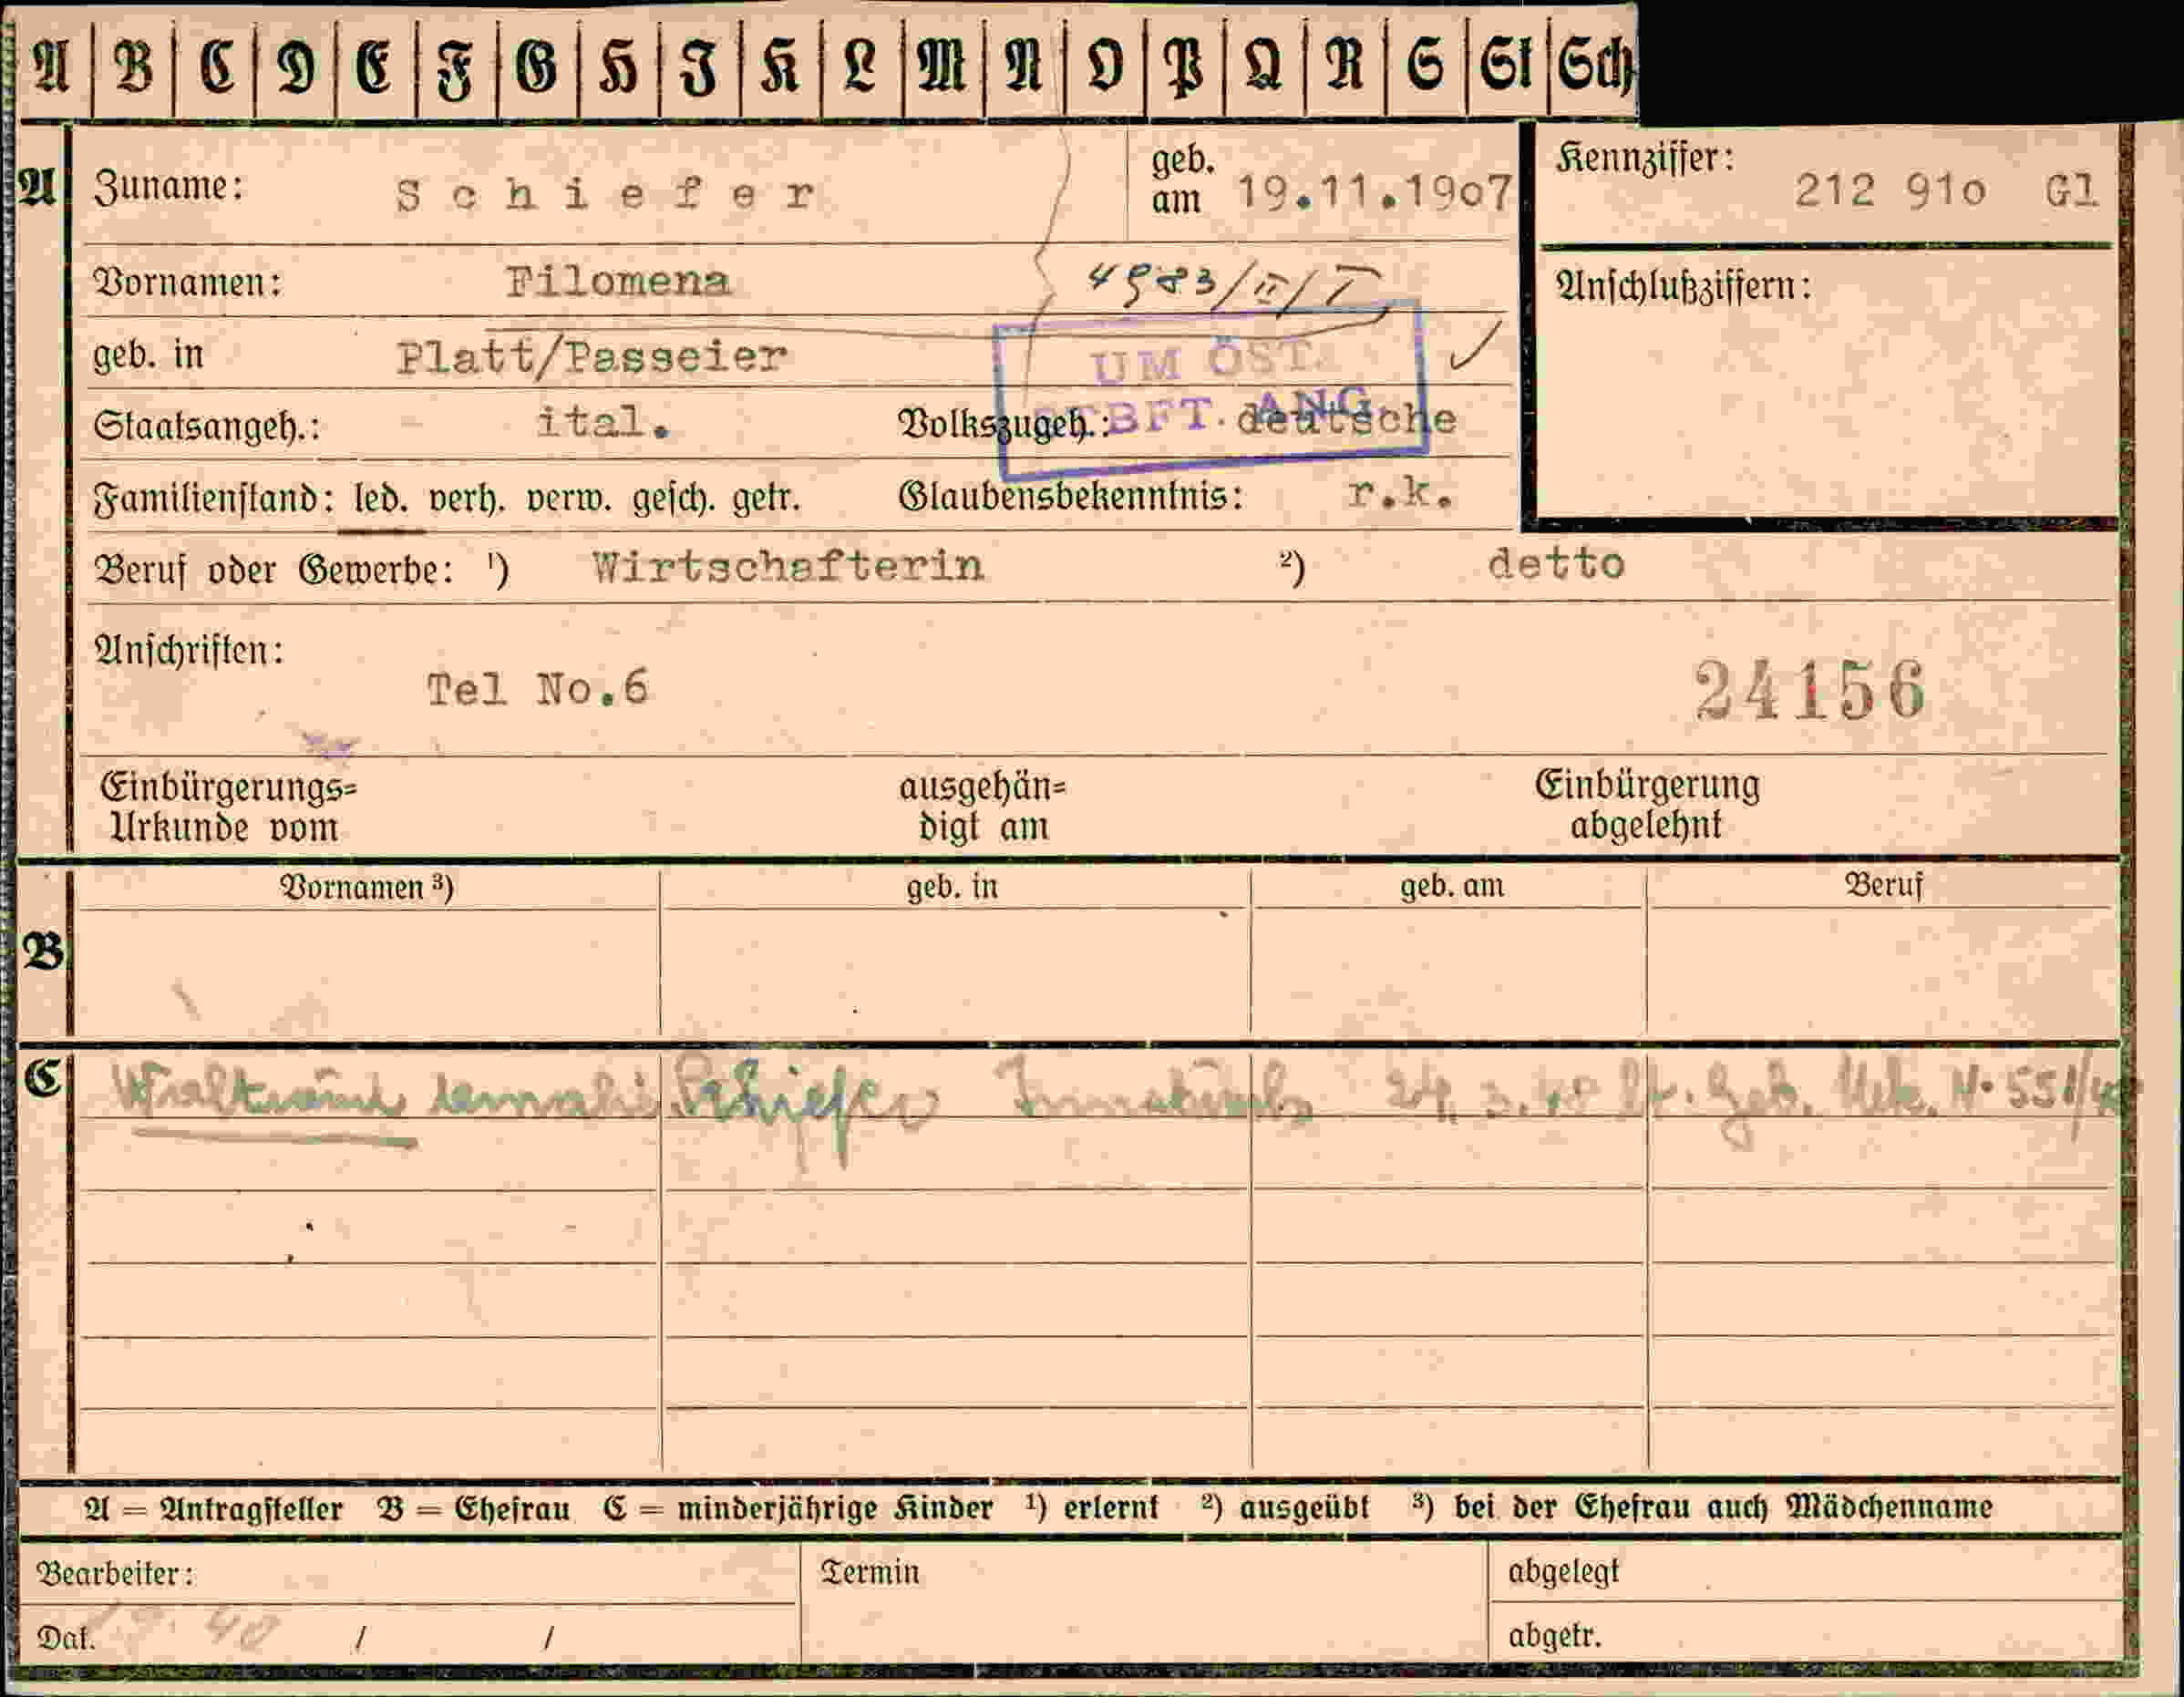 A B C D E F G H I K L M N O P Q R S St Sch
A Zuname: Schiefer geb. am 19.11.1907 Kennziffer: 212 910 Gl
Vornamen: Filomena
Anschlußziffern:
geb. in Platt/Passeier
UM ÖST.
Staatsangeh.: ital. Volkszugeh.: deutsche
STBFT. ANG.
Familienstand: led. verh. verw. gesch. getr. Glaubensbekenntnis: r.k.
Beruf oder Gewerbe: ¹) Wirtschafterin ²) detto
Anschriften:
Tel No.6
24156
Einbürgerungs=
Urkunde vom
ausgehän=
digt am
Einbürgerung
abgelehnt
B
Vornamen ³) geb. in geb. am Beruf
C
Schiefer Geb. N. 551/
A = Antragsteller B = Ehefrau C = minderjährige Kinder ¹) erlernt ²) ausgeübt ³) bei der Ehefrau auch Mädchenname
Bearbeiter: Termin abgelegt
Dat. 40 / / abgetr.